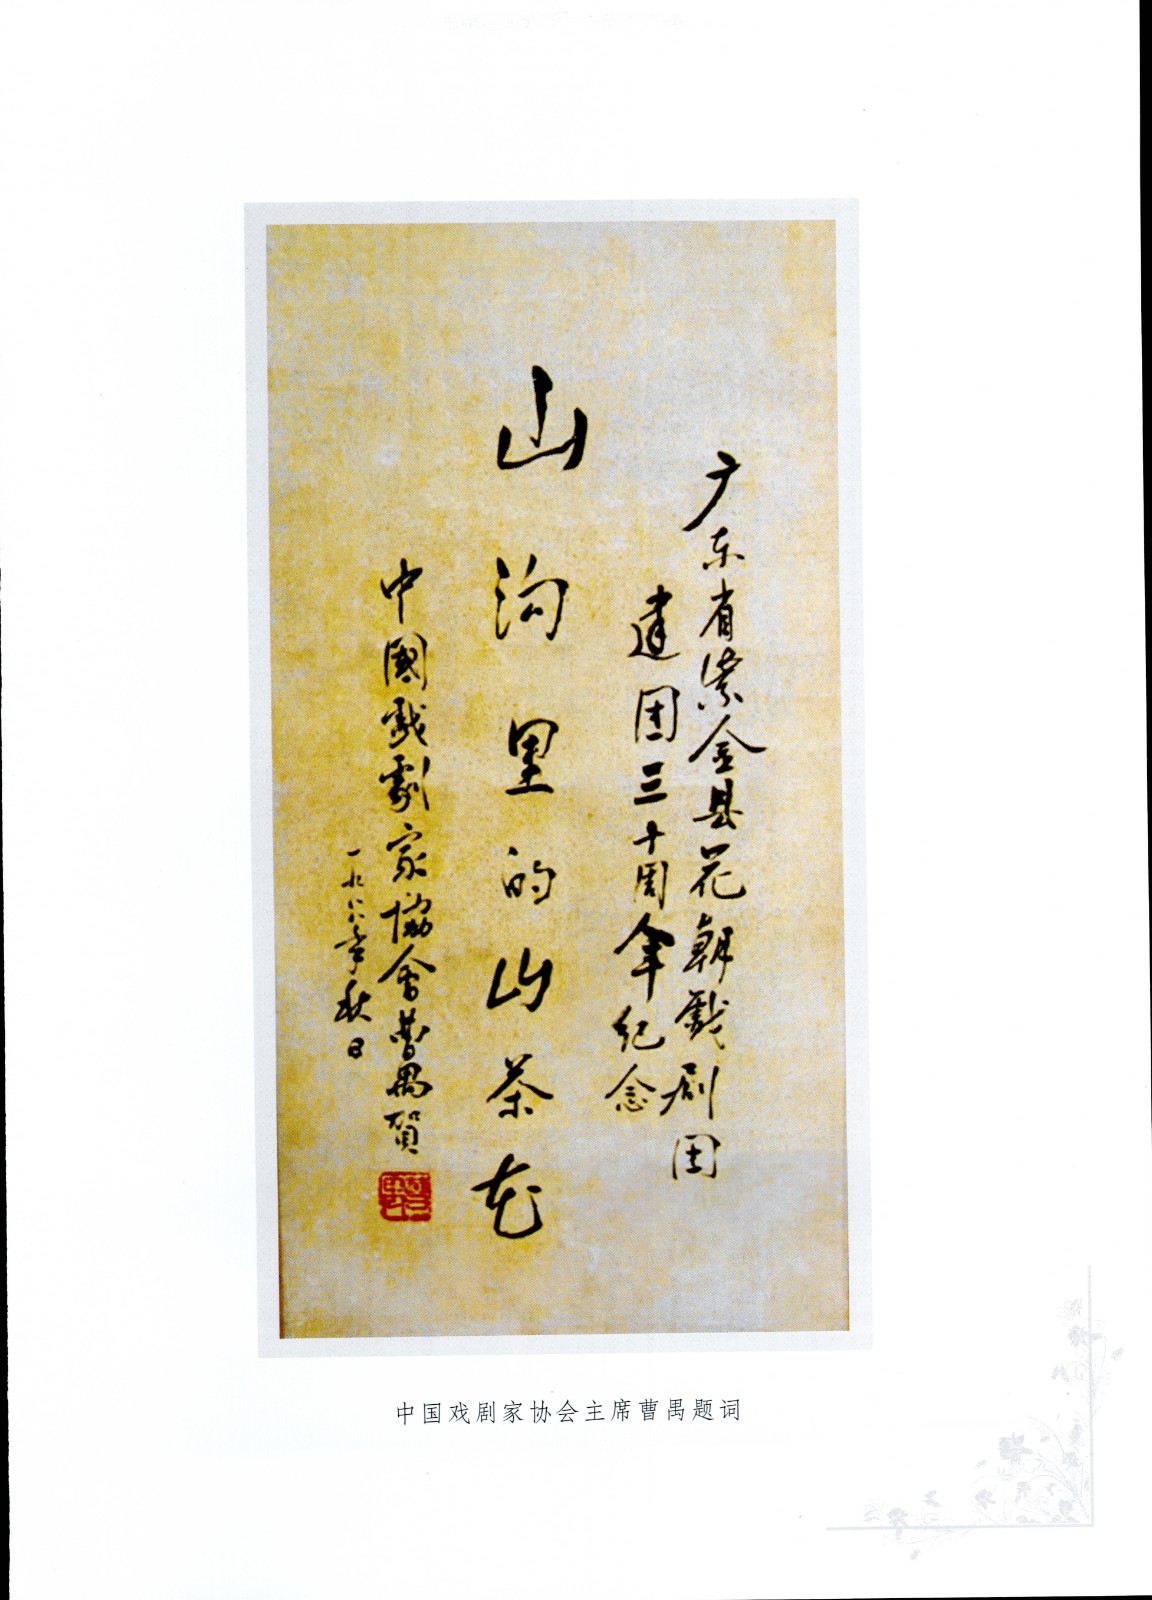 广东省紫金县花朝戏剧团
建团三十周年纪念
山沟里的山茶花
中國戏劇家協會曹禺贺
一九八八年秋日
中国戏剧家协会主席曹禺题词